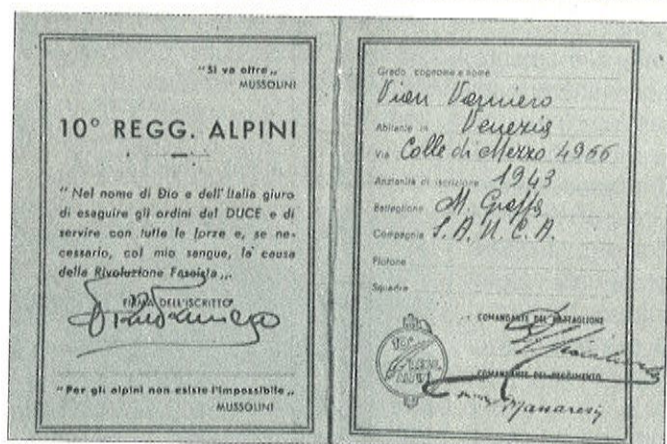 "Si va oltre„
MUSSOLINI
10° REGG. ALPINI
"Nel nome di Dio e dell'Italia giuro
di eseguire gli ordini del DUCE e di
servire con tutte le forze e, se ne-
cessario, col mio sangue, la causa
della Rivoluzione Fascista„.
FIRMA DELL'ISCRITTO
"Per gli alpini non esiste l'impossibile„
MUSSOLINI
Grado cognome e nome
Vian Varniero
Abitante in Venezia
Via Calle di Mezzo 4966
Anzianità di iscrizione 1943
Battaglione M. Grappa
Compagnia S.A.U.C.A.
Plotone
Squadra
COMANDANTE DEL BATTAGLIONE
10°
REGG.
ALPINI
COMANDANTE DEL REGGIMENTO
Manaresi